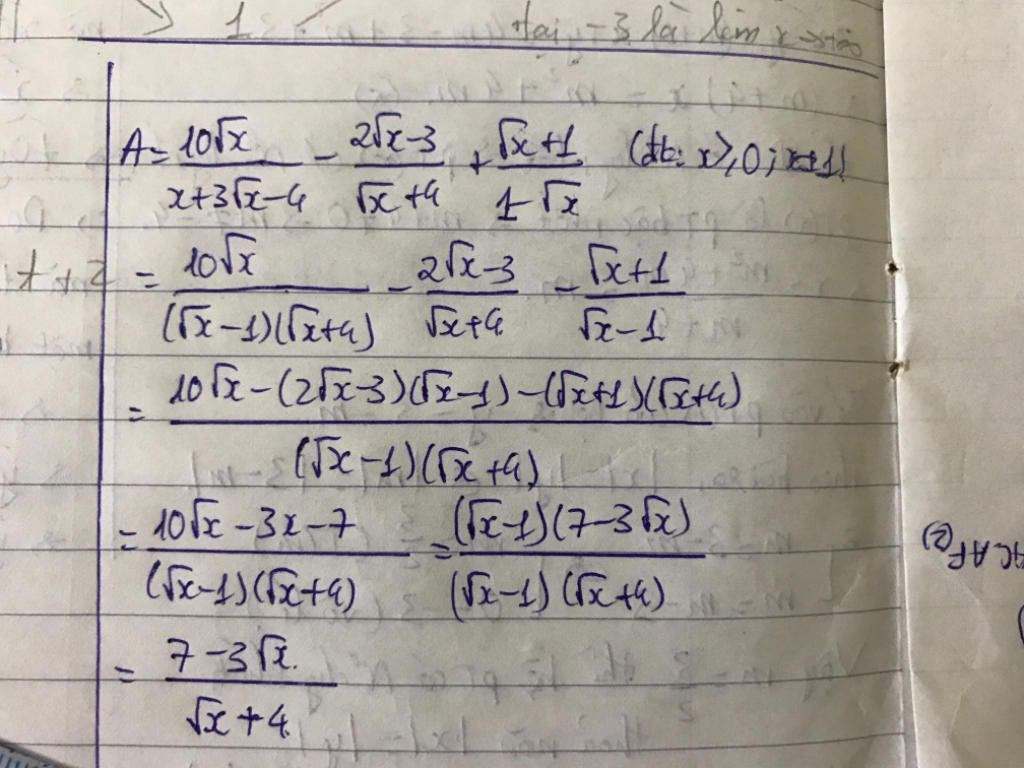 tại -3 là
A = 10√x / (x+3√x-4) - (2√x-3) / (√x+4) + (√x+1) / (1-√x) (đk: x ≥ 0; x ≠ 1)
= 10√x / ((√x-1)(√x+4)) - (2√x-3) / (√x+4) - (√x+1) / (√x-1)
= (10√x-(2√x-3)(√x-1)-(√x+1)(√x+4)) / ((√x-1)(√x+4))
= (10√x-3x-7) / ((√x-1)(√x+4)) = ((√x-1)(7-3√x)) / ((√x-1)(√x+4))
= (7-3√x) / (√x+4)